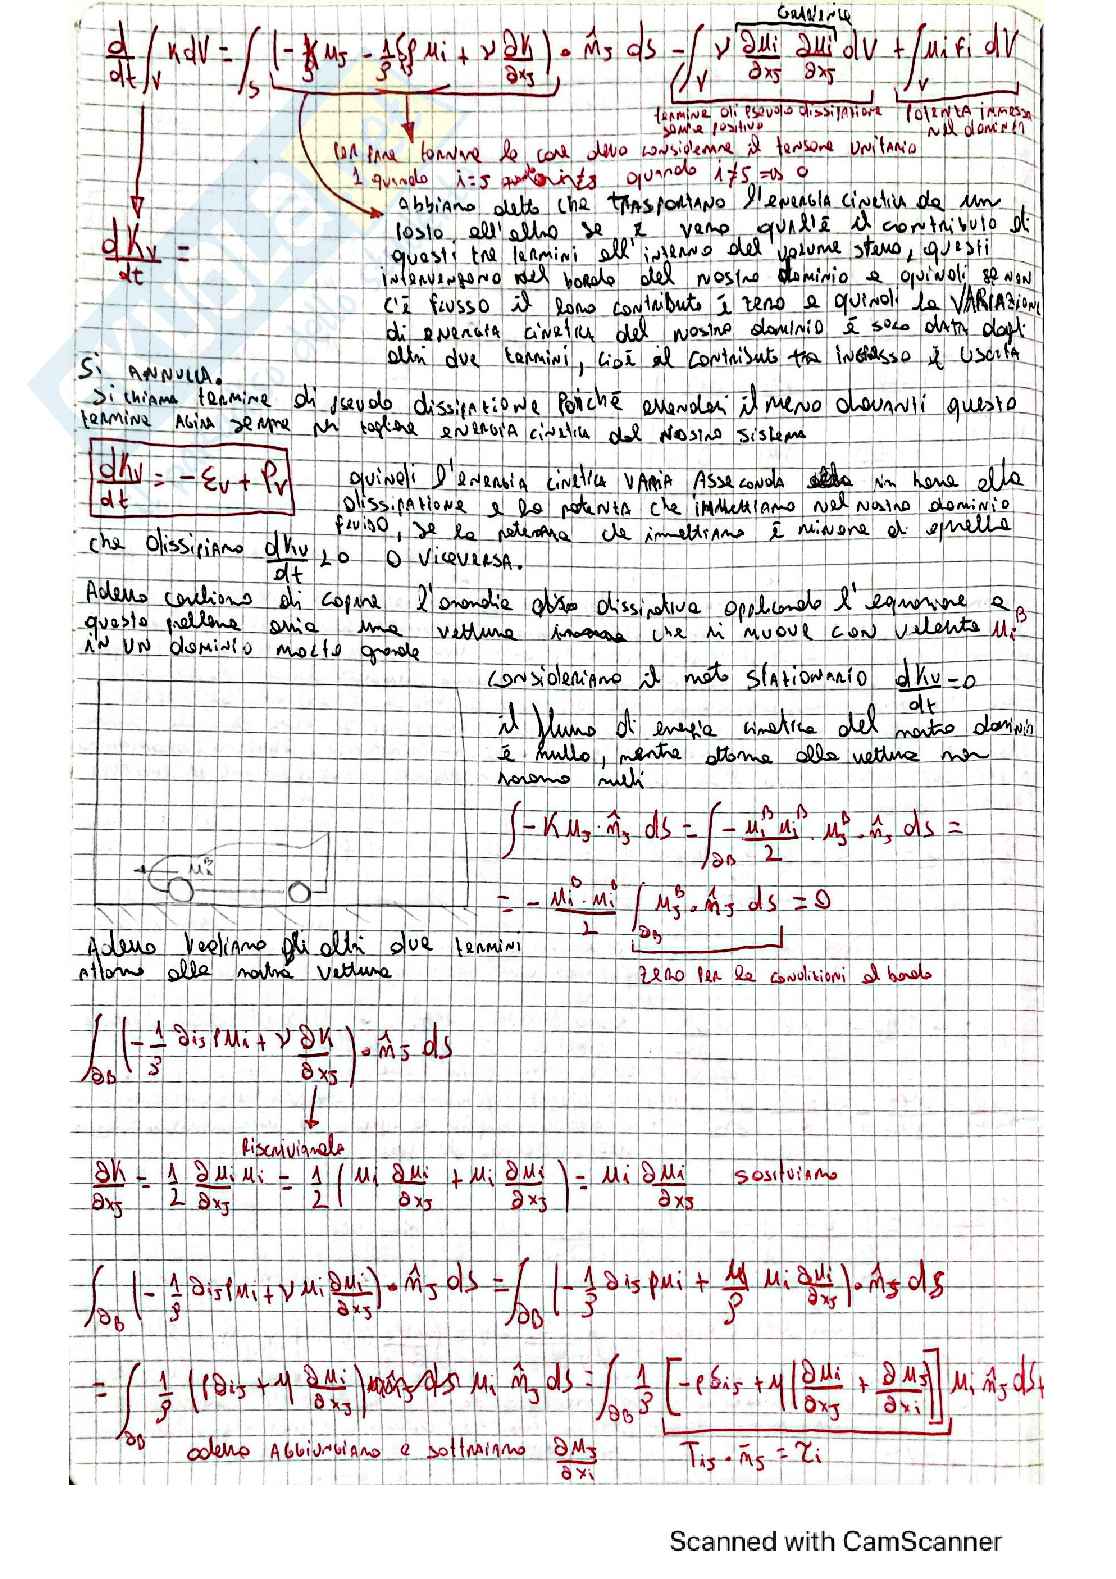 GRADIENTE
d/dt ∫_V K dV = ∫_S (-K u_j - 1/ρ p u_i + ν ∂K/∂x_j) · n̂_j dS - ∫_V ν ∂u_i/∂x_j ∂u_i/∂x_j dV + ∫_V u_i F_i dV
termine di pseudo dissipazione sempre positivo
POTENZA immessa nel dominio
per fare tornare le cose devo considerare il tensore unitario
1 quando i=j quando i≠j => 0
dK_V/dt =
abbiamo detto che TRASPORTANO l'energia cinetica da un
posto all'altro se è vero qual'è il contributo di
questi tre termini all'interno del volume stesso, questi
intervengono nel bordo del nostro dominio e quindi se non
c'è flusso il loro contributo è zero e quindi la VARIAZIONE
di energia cinetica del nostro dominio è solo data dagli
altri due termini, cioè il contributo tra ingresso e uscita
Si ANNULLA.
Si chiama termine di pseudo dissipazione poichè essendoci il meno davanti questo
termine agirà sempre per togliere energia cinetica dal nostro sistema
dK_V/dt = -ε_V + P_V
quindi l'energia cinetica VARIA Asseconda in base alla
dissipazione e la potenza che immettiamo nel nostro dominio
fluido, se la potenza che immettiamo è minore di quella
che dissipiamo dK_V/dt < 0 o viceversa.
Adesso cerchiamo di capire dissipativa applicando l'equazione a
questo problema ossia una vettura che si muove con velocità u_i^B
in un dominio molto grande
consideriamo il moto stazionario dK_V/dt = 0
il flusso di energia cinetica del nostro dominio
è nullo, mentre attorno alla vettura non
saranno nulli
∫ -K u_j · n̂_j dS = ∫_∂B - u_i^B u_i^B / 2 · u_j^B · n̂_j dS =
u_i^B
= - u_i^B · u_i^B / 2 ∫_∂B u_j^B · n̂_j dS = 0
zero per le condizioni al bordo
Adesso vogliamo gli altri due termini
attorno alla nostra vettura
∫_∂B (-1/ρ ∂ij p u_i + ν ∂K/∂x_j) · n̂_j dS
Riscriviamolo
∂K/∂x_j = 1/2 ∂u_i u_i/∂x_j = 1/2 (u_i ∂u_i/∂x_j + u_i ∂u_i/∂x_j) = u_i ∂u_i/∂x_j sostituiamo
∫_∂B (-1/ρ ∂ij p u_i + ν u_i ∂u_i/∂x_j) · n̂_j dS = ∫_∂B (-1/ρ ∂ij p u_i + μ/ρ u_i ∂u_i/∂x_j) · n̂_j dS
= ∫_∂B 1/ρ (p ∂ij + μ ∂u_i/∂x_j) u_i n̂_j dS = ∫_∂B 1/ρ [-p δij + μ (∂u_i/∂x_j + ∂u_j/∂x_i)] u_i n̂_j dS +
adesso aggiungiamo e sottraiamo ∂u_j/∂x_i
T_ij · n̄_j = τ_i
Scanned with CamScanner